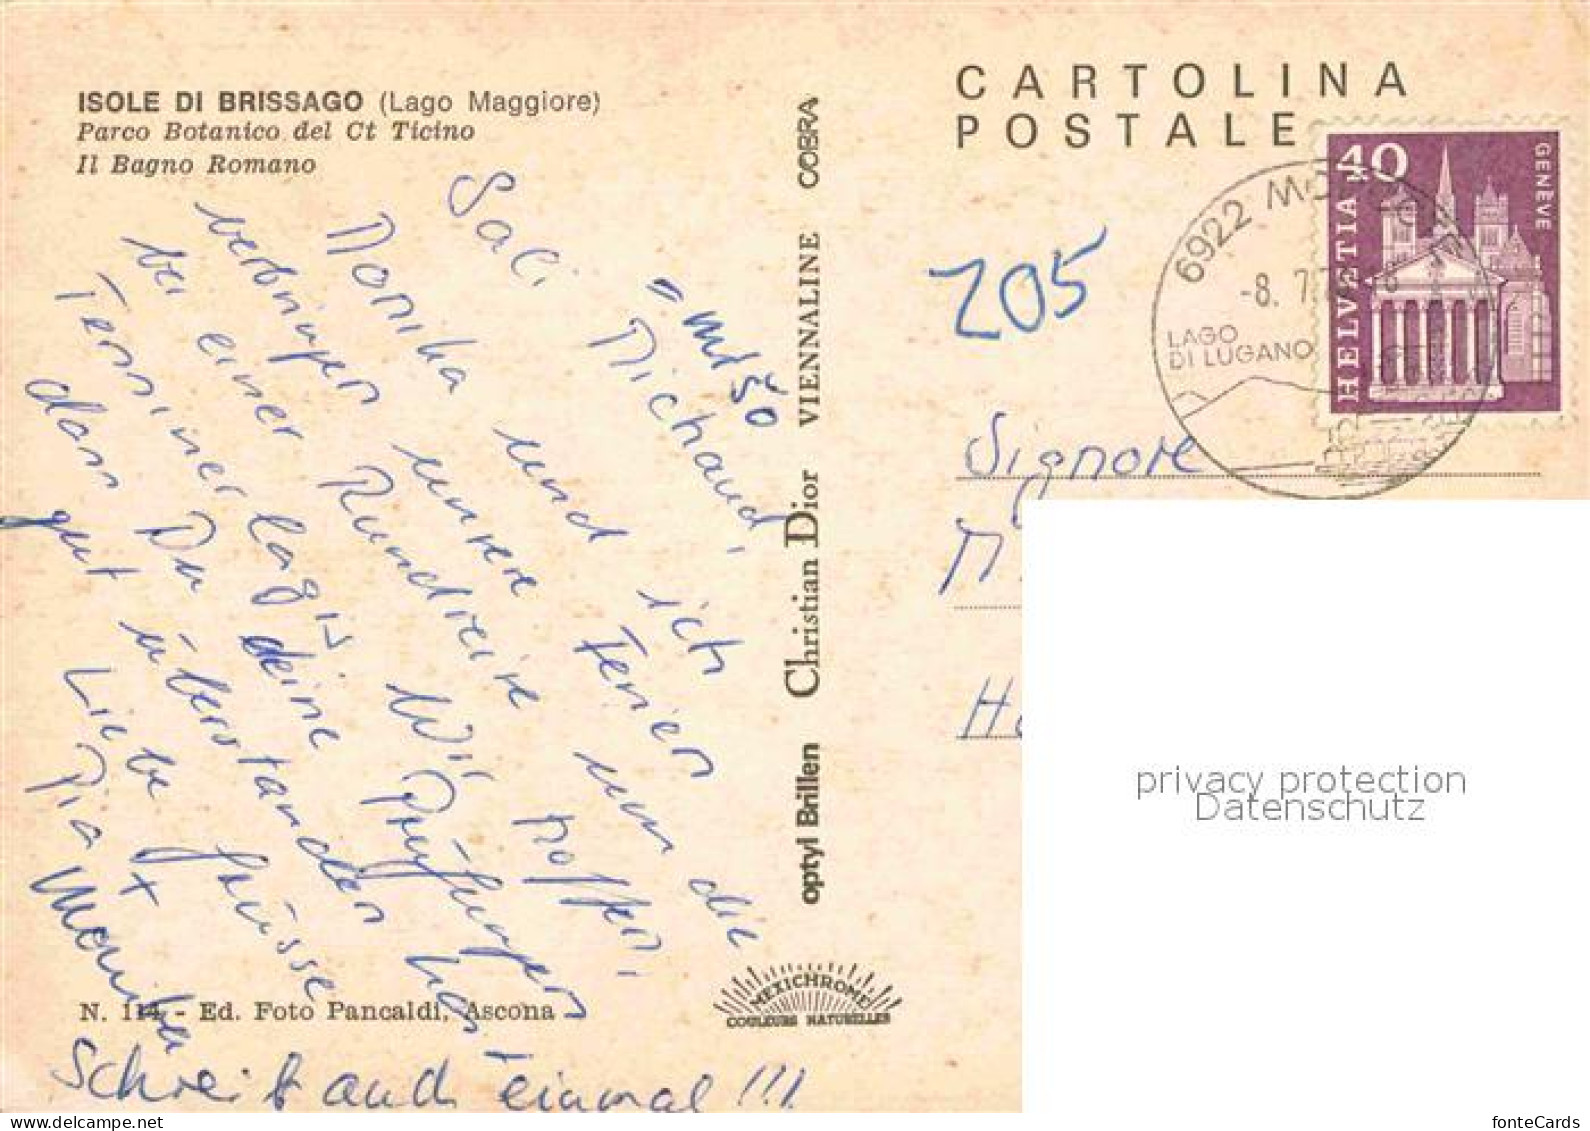 ISOLE DI BRISSAGO (Lago Maggiore)
Parco Botanico del Ct Ticino
Il Bagno Romano
Sali Michaud,
Monika und ich
verbringen unsere Ferien um die
bei einer Rundreise
Tessiner Lagis Wir hoffen,
dass Du deine Prüfungen
gut überstanden hast
Liebe Grüsse
Pia +
Monika
Schreib auch einmal !!!
N. 114 - Ed. Foto Pancaldi, Ascona
optyl Brillen Christian Dior VIENNALINE COBRA
MEXICHROME
COULEURS NATURELLES
CARTOLINA
POSTALE
40
HELVETIA
GENÈVE
6922
-8. 7
LAGO
DI LUGANO
205
Signore
M
privacy protection
Datenschutz
fonteCards
www.delcampe.net